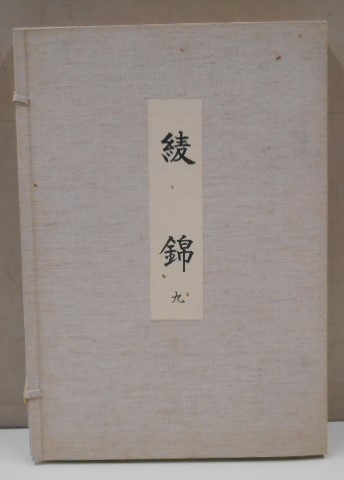 綾錦
九